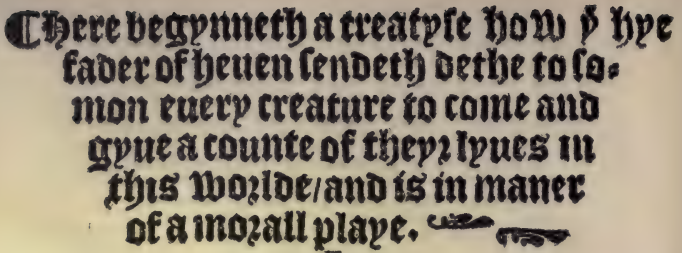 ¶ Here begynneth a treatyse how yͤ hye
fader of heuen sendeth dethe to so⸗
mon euery creature to come and
gyue a counte of theyꝛ lyues in
this woꝛlde/and is in maner
of a moꝛall playe.